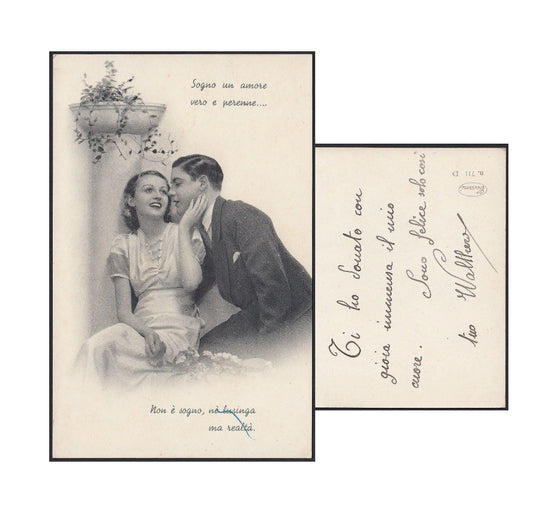 Sogno un amore
vero e perenne....
Non è sogno, nò lusinga
ma realtà.
Ti ho donato con
gioia immensa il mio
cuore. Sono felice solo così
tuo Walthero
n. 711 D